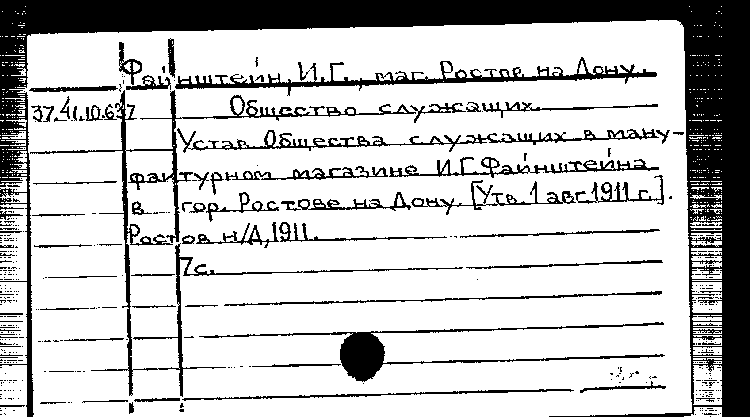 Файнштейн, И.Г., маг. Ростов на Дону.
37.41.10.637 Общество служащих.
Устав Общества служащих в ману-
фактурном магазине И.Г.Файнштейна
в гор. Ростове на Дону. [Утв. 1 авг 1911 г.].
Ростов н/Д, 1911.
7с.